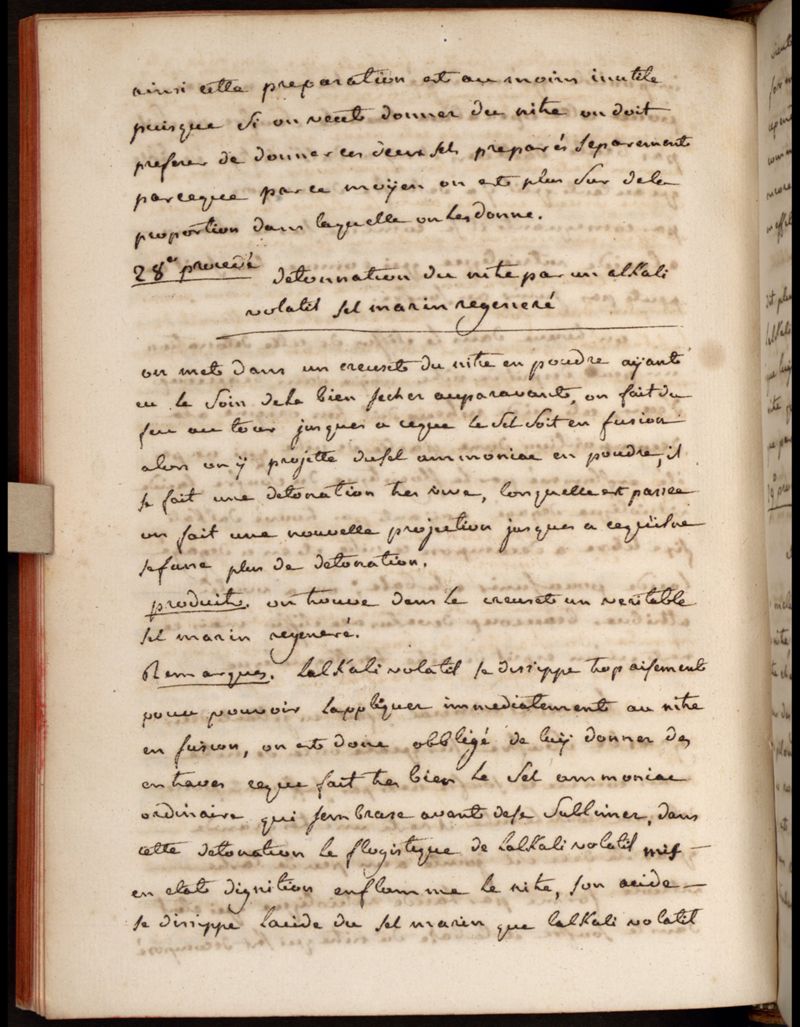 ainsi cette preparation est au moins inutile
puisque si on veut donner du nitre on doit
preferer de donner ces deux sels preparés separement
parceque par ce moÿen on est plus sur de la
proportion dans laquelle on les donne.
28e procedé detonnation du nitre par un alkali
volatil sel marin regeneré
on met dans un creuset du nitre en poudre aÿant
eu le soin de la bien secher auparavant, on fait du
feu au tour jusques a ceque le sel soit en fusion
alors on ÿ projette du sel ammoniac en poudre, il
se fait une detonation tres vive, lorsquelle est passée
on fait une nouvelle projection jusques a cequ'il ne
se fasse plus de detonation.
produits. on trouve dans le creuset un veritable
sel marin regeneré.
Remarques. lalkali volatil se dissippe trop aisement
pour pouvoir lappliquer immediatement au nitre
en fusion, on est donc obbligé de luÿ donner des
entraves ceque fait tres bien le sel ammoniac
ordinaire qui sembrase avant de se sublimer, dans
cette detonation le flogistique de lalkali volatil mis
en etat dignition enflamme le nitre, son acide
se dissippe lacide du sel marin que lalkali volatil